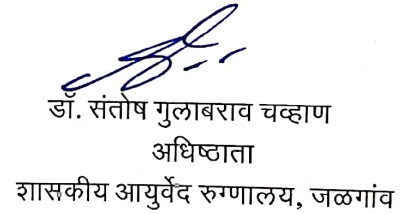 डॉ. संतोष गुलाबराव चव्हाण
अधिष्ठाता
शासकीय आयुर्वेद रुग्णालय, जळगांव